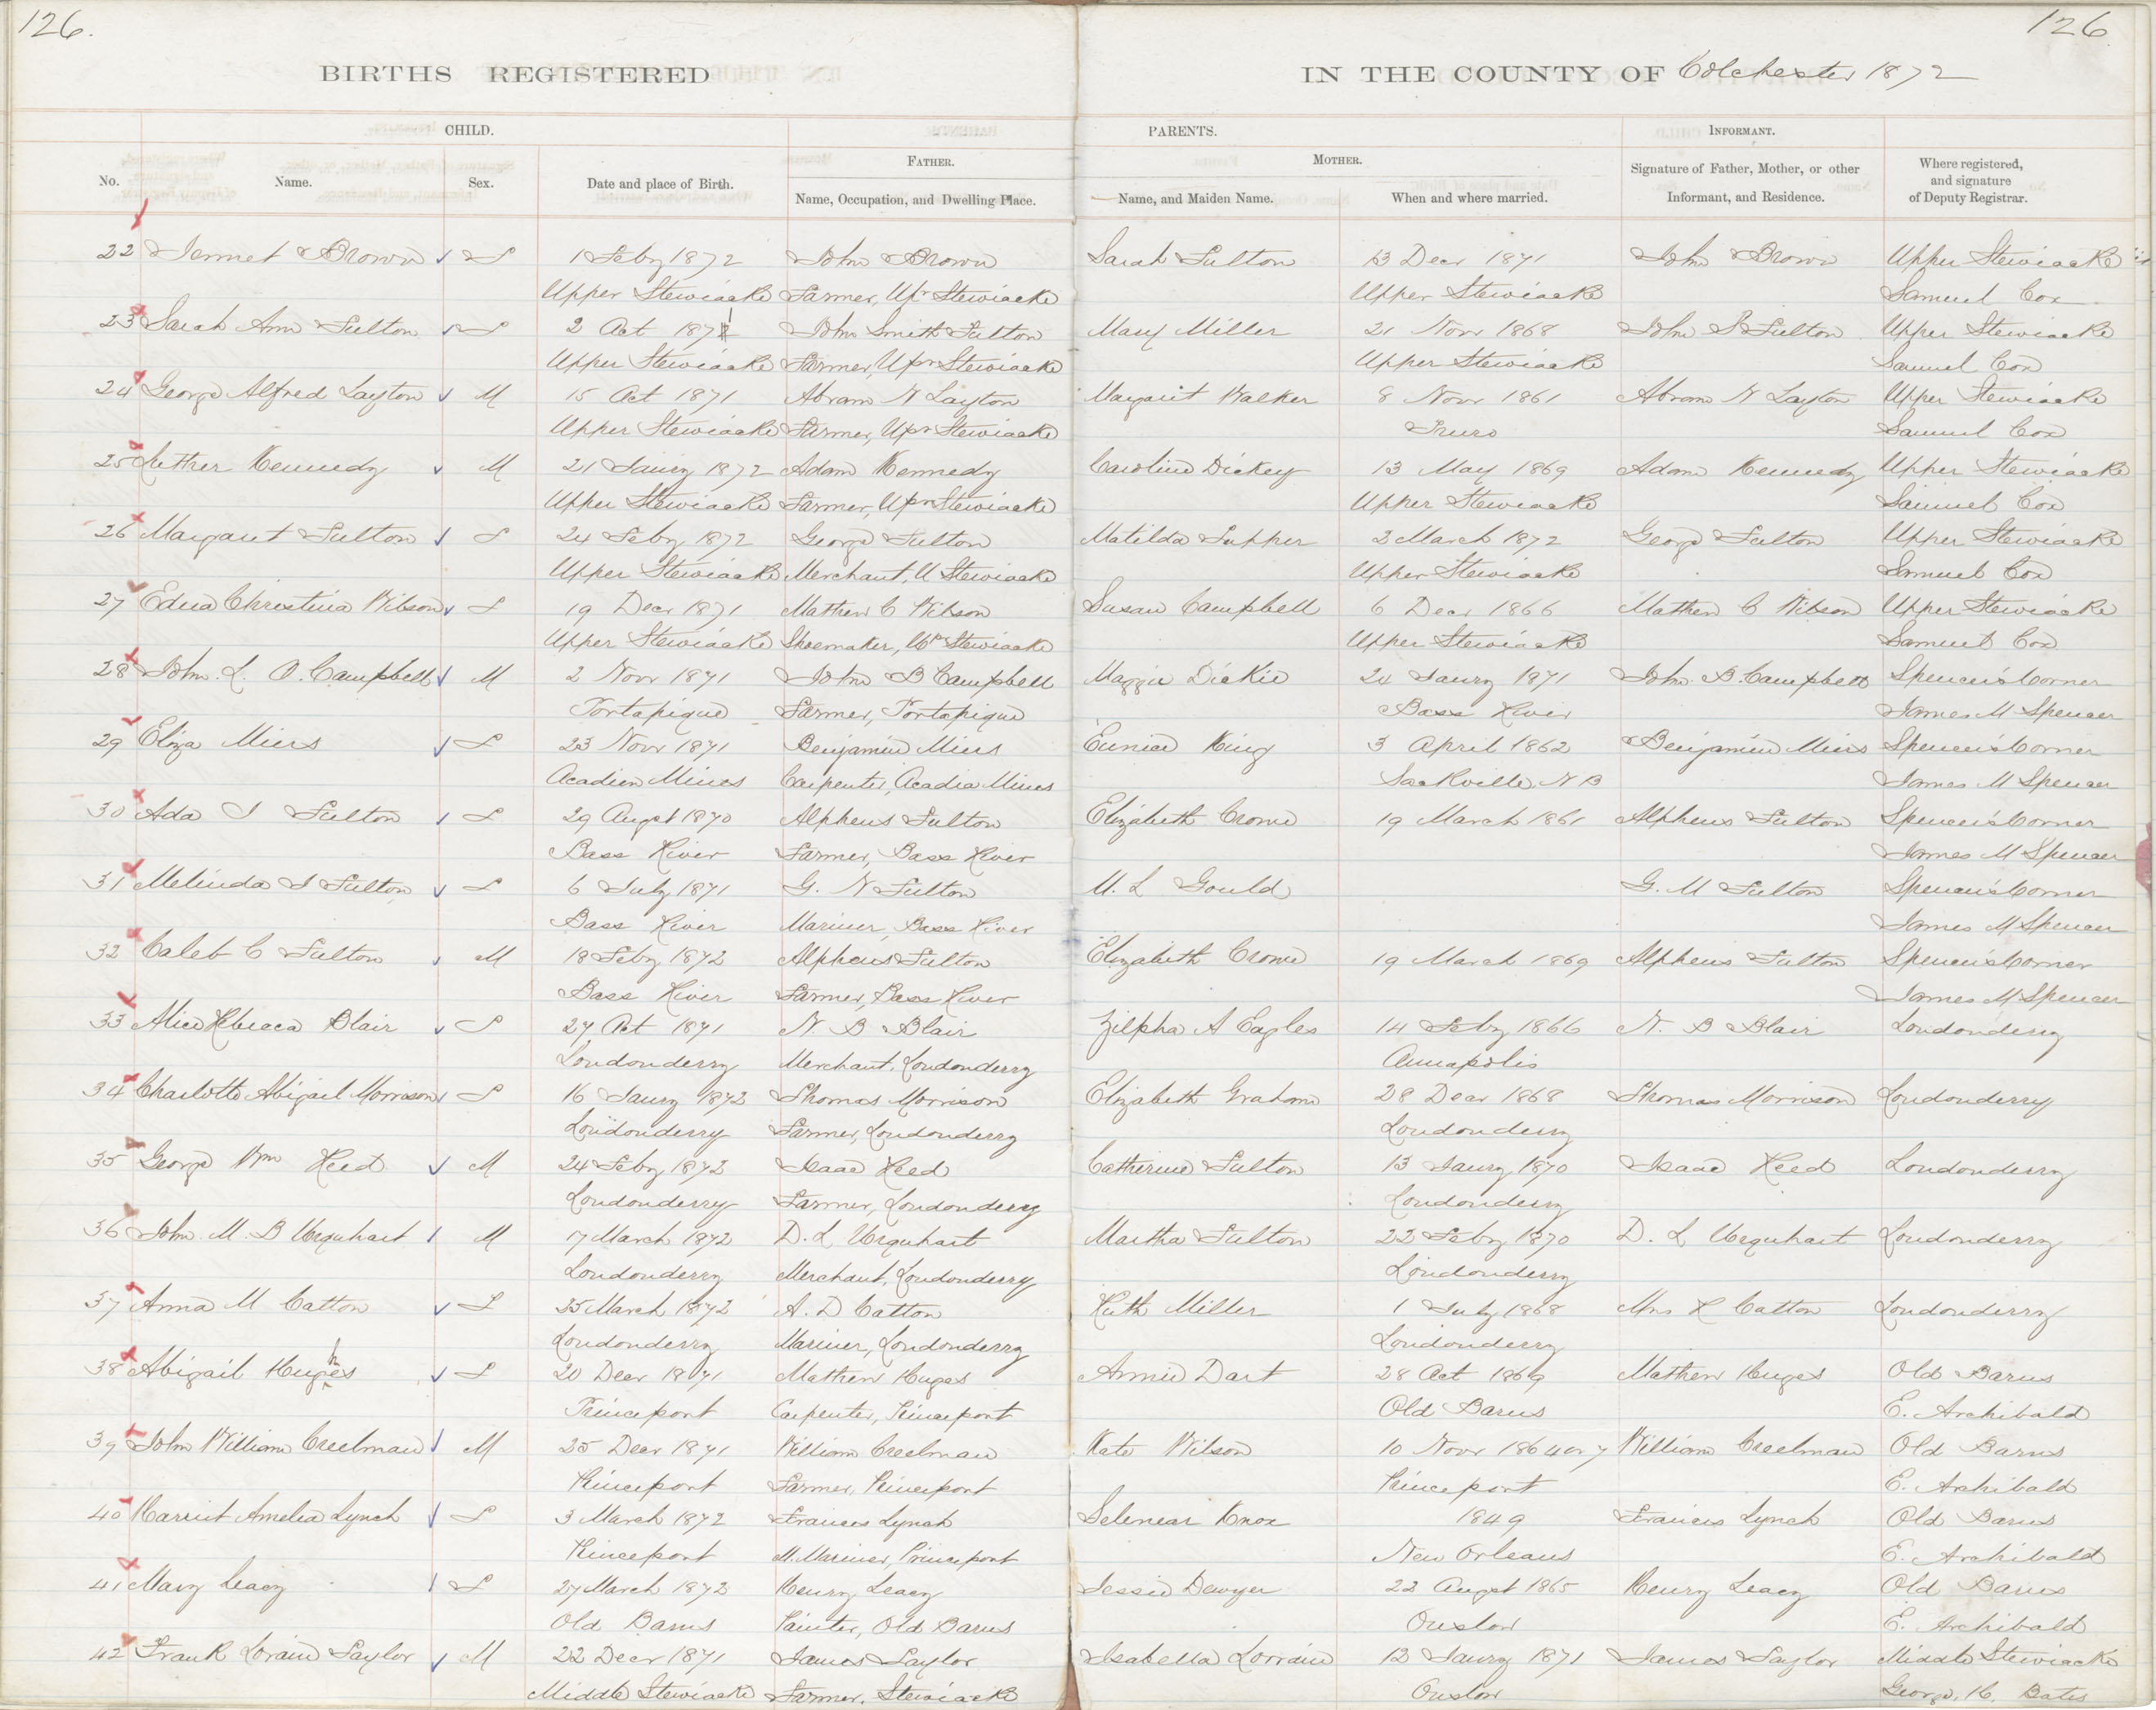 126.
126.
BIRTHS REGISTERED IN THE COUNTY OF Colchester 1872
CHILD. PARENTS. INFORMANT.
FATHER. MOTHER.
No. Name. Sex. Date and place of Birth. Name, Occupation, and Dwelling Place. Name, and Maiden Name. When and where married. Signature of Father, Mother, or other Informant, and Residence. Where registered, and signature of Deputy Registrar.
22 Jennet Brown F 1 Feby 1872 John Brown Sarah Fulton 13 Decr 1871 John Brown Upper Stewiacke
Upper Stewiacke Farmer, Upr Stewiacke Upper Stewiacke Samuel Cox
23 Sarah Ann Fulton F 2 Oct 1871 John Smith Fulton Mary Miller 21 Novr 1868 John S Fulton Upper Stewiacke
Upper Stewiacke Farmer, Upr Stewiacke Upper Stewiacke Samuel Cox
24 George Alfred Layton M 15 Oct 1871 Abram N Layton Margaret Walker 8 Novr 1861 Abram N Layton Upper Stewiacke
Upper Stewiacke Farmer, Upr Stewiacke Truro Samuel Cox
25 Luther Kennedy M 21 Jany 1872 Adam Kennedy Caroline Dickey 13 May 1869 Adam Kennedy Upper Stewiacke
Upper Stewiacke Farmer, Upr Stewiacke Upper Stewiacke Samuel Cox
26 Margaret Fulton F 24 Feby 1872 George Fulton Matilda Tupper 2 March 1872 George Fulton Upper Stewiacke
Upper Stewiacke Merchant, U Stewiacke Upper Stewiacke Samuel Cox
27 Edna Christina Wilson F 19 Decr 1871 Mathew C Wilson Susan Campbell 6 Decr 1866 Mathew C Wilson Upper Stewiacke
Upper Stewiacke Shoemaker, Upr Stewiacke Upper Stewiacke Samuel Cox
28 John. L. O. Campbell M 2 Novr 1871 John B Campbell Maggie Dickie 24 Jany 1871 John. B. Campbell Spencer's Corner
Portapique Farmer, Portapique Bass River James M Spencer
29 Eliza Miers F 23 Novr 1871 Benjamin Miers Eunice King 3 April 1862 Benjamin Miers Spencer's Corner
Acadien Mines Carpenter, Acadia Mines Sackville, N B James M Spencer
30 Ada J Fulton F 29 Augst 1870 Alpheus Fulton Elizabeth Crowe 19 March 1861 Alpheus Fulton Spencer's Corner
Bass River Farmer, Bass River James M Spencer
31 Melinda J Fulton F 6 July 1871 G. N Fulton M. L Gould G. M Fulton Spencer's Corner
Bass River Mariner, Bass River James M Spencer
32 Caleb C Fulton M 18 Feby 1872 Alpheus Fulton Elizabeth Crowe 19 March 1869 Alpheus Fulton Spencer's Corner
Bass River Farmer, Bass River James M Spencer
33 Alice Rebecca Blair F 27 Oct 1871 N. B Blair Zilpha A Eagles 14 Feby 1866 N. B Blair Londonderry
Londonderry Merchant, Londonderry Annapolis
34 Charlotte Abigail Morrison F 16 Jany 1872 Thomas Morrison Elizabeth Graham 28 Decr 1868 Thomas Morrison Londonderry
Londonderry Farmer, Londonderry Londonderry
35 George Wm Reed M 24 Feby 1872 Isaac Reed Catherine Fulton 13 Jany 1870 Isaac Reed Londonderry
Londonderry Farmer, Londonderry Londonderry
36 John. M. B Urquhart M 17 March 1872 D. L Urquhart Martha Fulton 22 Feby 1870 D. L Urquhart Londonderry
Londonderry Merchant, Londonderry Londonderry
37 Anna M Catton F 25 March 1872 A. D Catton Ruth Miller 1 July 1868 Mrs R Catton Londonderry
Londonderry Mariner, Londonderry Londonderry
38 Abigail Hughes F 20 Decr 1871 Mathew Huges Annie Dart 28 Oct 1869 Mathew Huges Old Barns
Princeport Carpenter, Princeport Old Barns E. Archibald
39 John William Creelman M 25 Decr 1871 William Creelman Kate Wilson 10 Novr 1864 or 7 William Creelman Old Barns
Princeport Farmer, Princeport Princeport E. Archibald
40 Harriet Amelia Lynch F 3 March 1872 Frances Lynch Selenear Knox 1849 Francis Lynch Old Barns
Princeport M. Mariner, Princeport New Orleans E. Archibald
41 Mary Leacy F 27 March 1872 Henry Leacy Jessie Dewyer 22 Augst 1865 Henry Leacy Old Barns
Old Barns Painter, Old Barns Onslow E. Archibald
42 Frank Lorain Taylor M 22 Decr 1871 James Taylor Isabella Lorraine 12 Jany 1871 James Taylor Middle Stewiacke
Middle Stewiacke Farmer, Stewiacke Onslow George. H. Bates